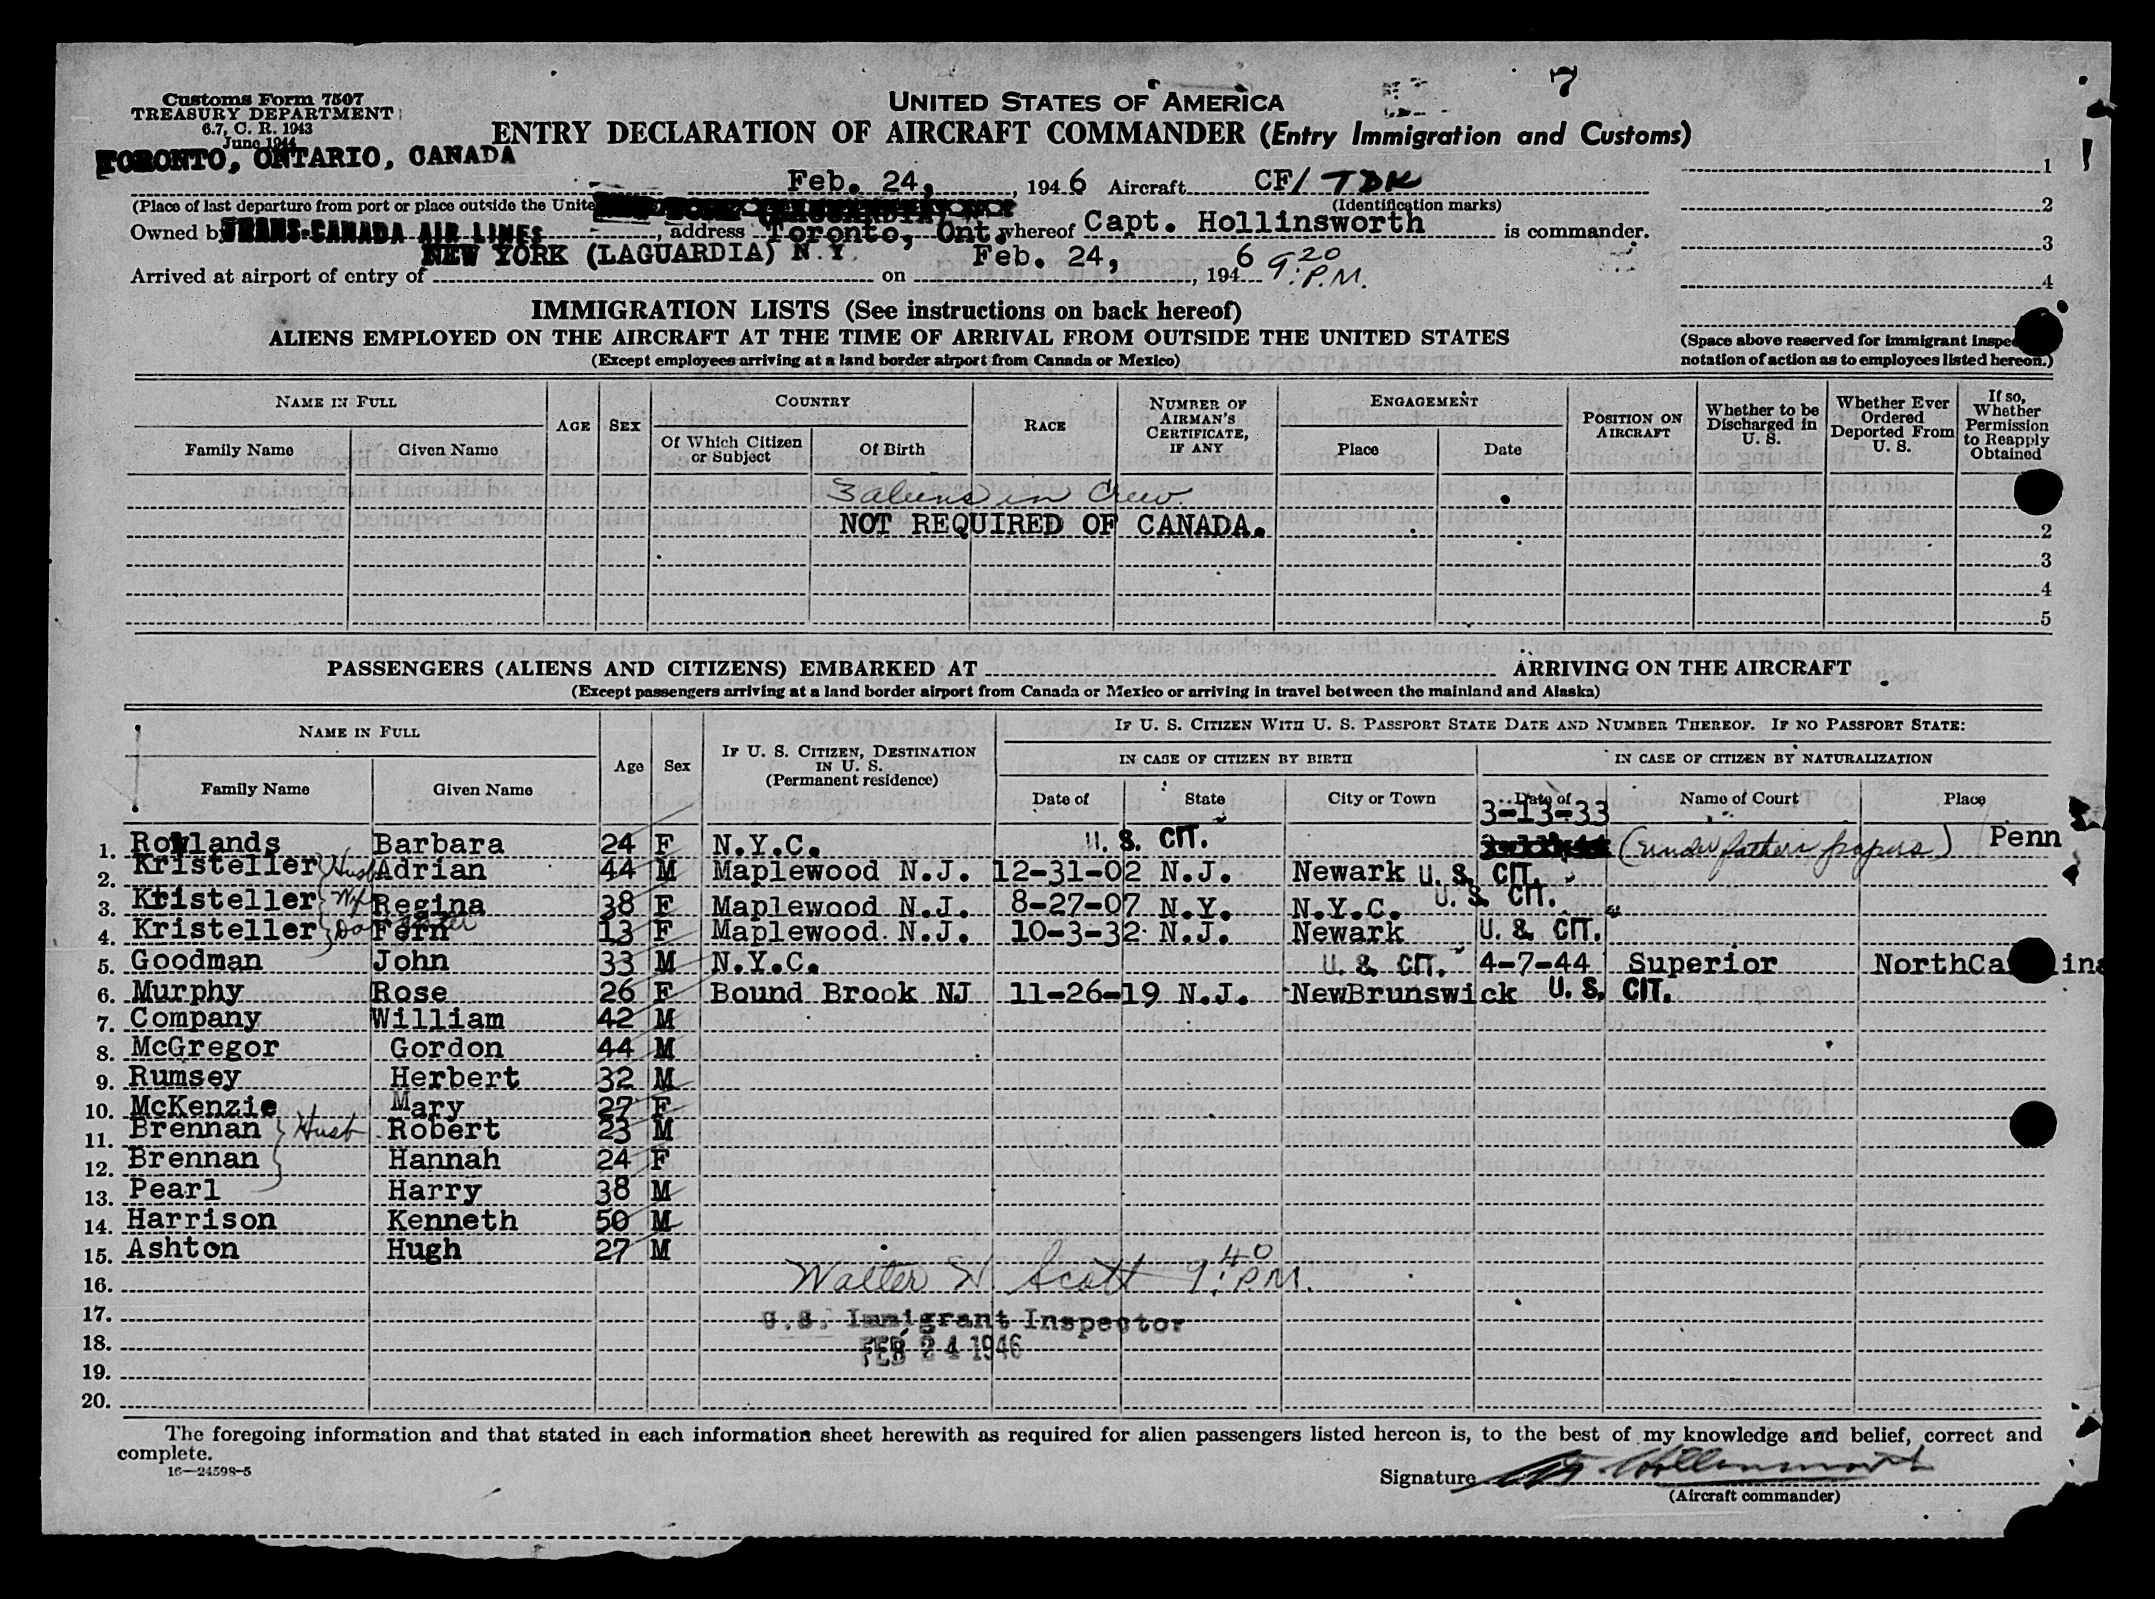 7
Customs Form 7507
TREASURY DEPARTMENT
6.7, C. R. 1943
June 1944
UNITED STATES OF AMERICA
ENTRY DECLARATION OF AIRCRAFT COMMANDER (Entry Immigration and Customs)
TORONTO, ONTARIO, CANADA
Feb. 24, 1946 Aircraft CF/ TDK
(Place of last departure from port or place outside the Unite
(Identification marks)
Owned by TRANS-CANADA AIR LINES, address Toronto, Ont. whereof Capt. Hollinsworth is commander.
Arrived at airport of entry of NEW YORK (LAGUARDIA) N.Y. on Feb. 24, 1946 9:20 P.M.
1
2
3
4
(Space above reserved for immigrant inspe
notation of action as to employees listed hereon.)
IMMIGRATION LISTS (See instructions on back hereof)
ALIENS EMPLOYED ON THE AIRCRAFT AT THE TIME OF ARRIVAL FROM OUTSIDE THE UNITED STATES
(Except employees arriving at a land border airport from Canada or Mexico)
NAME IN FULL
Family Name Given Name
AGE SEX
COUNTRY
Of Which Citizen or Subject Of Birth
RACE
NUMBER OF AIRMAN'S CERTIFICATE, IF ANY
ENGAGEMENT
Place Date
POSITION ON AIRCRAFT
Whether to be Discharged in U. S.
Whether Ever Ordered Deported From U. S.
If so, Whether Permission to Reapply Obtained
3 aliens in Crew.
NOT REQUIRED OF CANADA.
2
3
4
5
PASSENGERS (ALIENS AND CITIZENS) EMBARKED AT ARRIVING ON THE AIRCRAFT
(Except passengers arriving at a land border airport from Canada or Mexico or arriving in travel between the mainland and Alaska)
NAME IN FULL
Family Name Given Name
Age Sex
IF U. S. CITIZEN, DESTINATION IN U. S.
(Permanent residence)
IF U. S. CITIZEN WITH U. S. PASSPORT STATE DATE AND NUMBER THEREOF. IF NO PASSPORT STATE:
IN CASE OF CITIZEN BY BIRTH
Date of State City or Town
IN CASE OF CITIZEN BY NATURALIZATION
Date of Name of Court Place
3-13-33
1. Rowlands Barbara 24 F N.Y.C. U. S. CIT. (under fathers papers) Penn
2. Kristeller Husb Adrian 44 M Maplewood N.J. 12-31-02 N.J. Newark U. S. CIT.
3. Kristeller Wf Regina 38 F Maplewood N.J. 8-27-07 N.Y. N.Y.C. U. S. CIT.
4. Kristeller Daughter Fern 13 F Maplewood N.J. 10-3-32 N.J. Newark U. S. CIT.
5. Goodman John 33 M N.Y.C. U. S. CIT. 4-7-44 Superior NorthCa ina
6. Murphy Rose 26 F Bound Brook NJ 11-26-19 N.J. NewBrunswick U. S. CIT.
7. Company William 42 M
8. McGregor Gordon 44 M
9. Rumsey Herbert 32 M
10. McKenzie Mary 27 F
11. Brennan Husb Robert 23 M
12. Brennan Hannah 24 F
13. Pearl Harry 38 M
14. Harrison Kenneth 50 M
15. Ashton Hugh 27 M
16. Walter N. Scott 9:40 P.M.
17. U.S. Immigrant Inspector
18. FEB 24 1946
19.
20.
The foregoing information and that stated in each information sheet herewith as required for alien passengers listed hereon is, to the best of my knowledge and belief, correct and
complete.
16—24598-5
Signature Hollinsworth
(Aircraft commander)